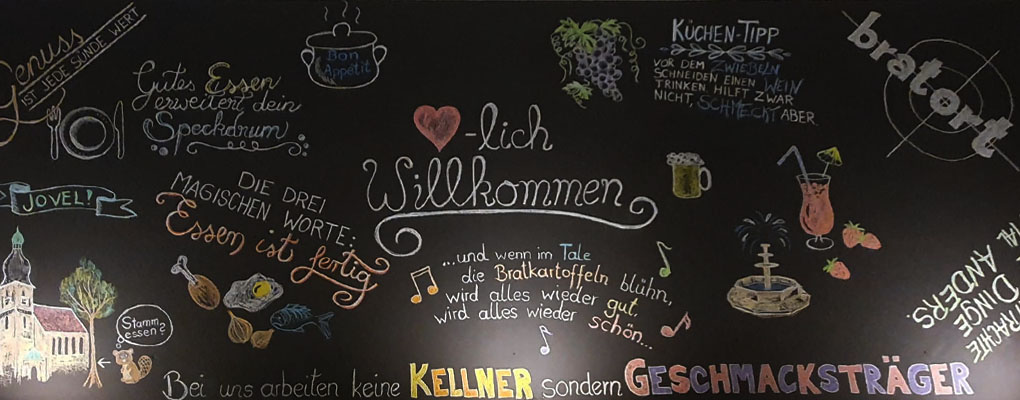 Genuss
IST JEDE SÜNDE WERT
Gutes Essen
erweitert dein
Speckdrum
Bon
Appétit
KÜCHEN-TIPP
VOR DEM ZWIEBELN
SCHNEIDEN EINEN WEIN
TRINKEN. HILFT ZWAR
NICHT, SCHMECKT ABER.
bratort
-lich
Willkommen
JOVEL!
DIE DREI
MAGISCHEN WORTE:
Essen ist fertig
...und wenn im Tale
die Bratkartoffeln blühn,
wird alles wieder gut,
wird alles wieder schön...
Stamm
essen?
TRACHTE
DINGE
AL ANDERS.
Bei uns arbeiten keine KELLNER sondern GESCHMACKSTRÄGER